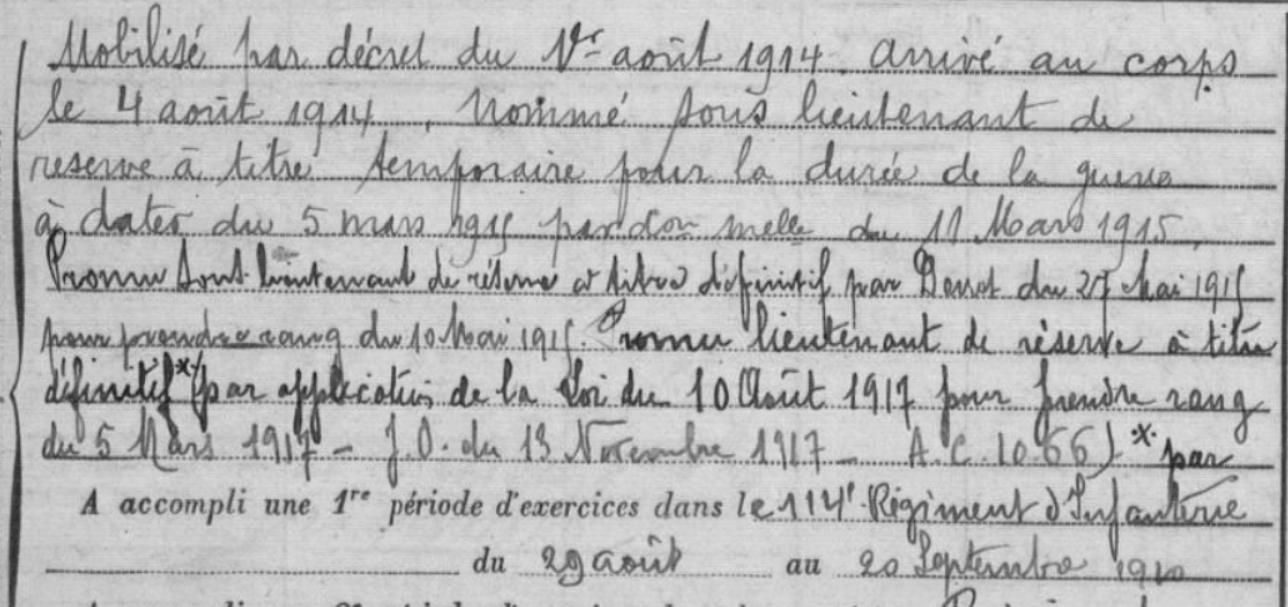 Mobilisé par décret du 1er août 1914. Arrivé au corps
le 4 août 1914, Nommé sous lieutenant de
reserve à titre temporaire pour la durée de la guerre
à dater du 5 mars 1915 par don melle du 11 Mars 1915.
Promu Sous-lieutenant de réserve à titre définitif par Decret du 27 Mai 1915
pour prendre rang du 10 Mai 1915. Promu lieutenant de réserve à titre
définitif * (par application de la Loi du 10 Août 1917 pour prendre rang
du 5 Mars 1917 - J.O. du 13 Novembre 1917 - A.C. 10.66) * par
A accompli une 1re période d'exercices dans le 114e Régiment d'Infanterie
du 29 août au 20 Septembre 1910